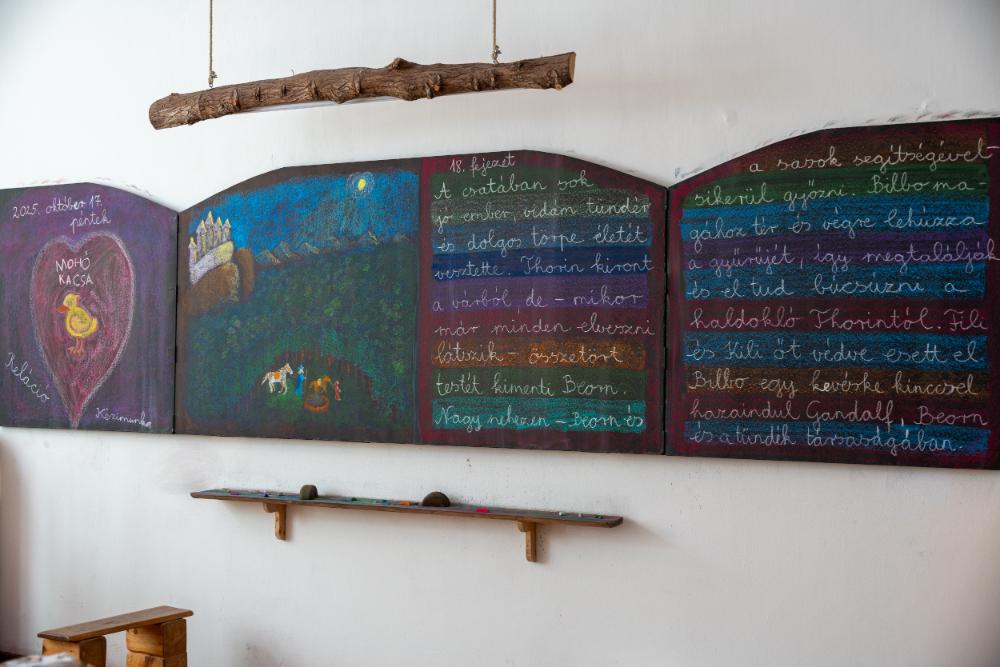 2025. október 17.
péntek
MOHÓ
KACSA
Reláció
Kézimunka
18. fejezet
A csatában sok
jó ember, vidám tündér
és dolgos törpe életét
vesztette. Thorin kiront
a várból, de - mikor
már minden elveszni
látszik - összetört
testét kimenti Beorn.
Nagy nehezen - Beorn és
a sasok segítségével -
sikerül győzni. Bilbo ma-
gához tér és végre lehúzza
a gyűrűjét, így megtalálják
és el tud búcsúzni a
haldokló Thorintól. Fili
és Kili őt védve esett el
Bilbo egy kevéske kinccsel
hazaindul Gandalf, Beorn
és a tündék társaságában.